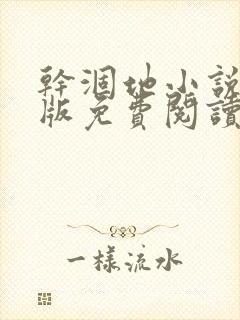 幹涸地小説
版免費閱讀
一樣流水